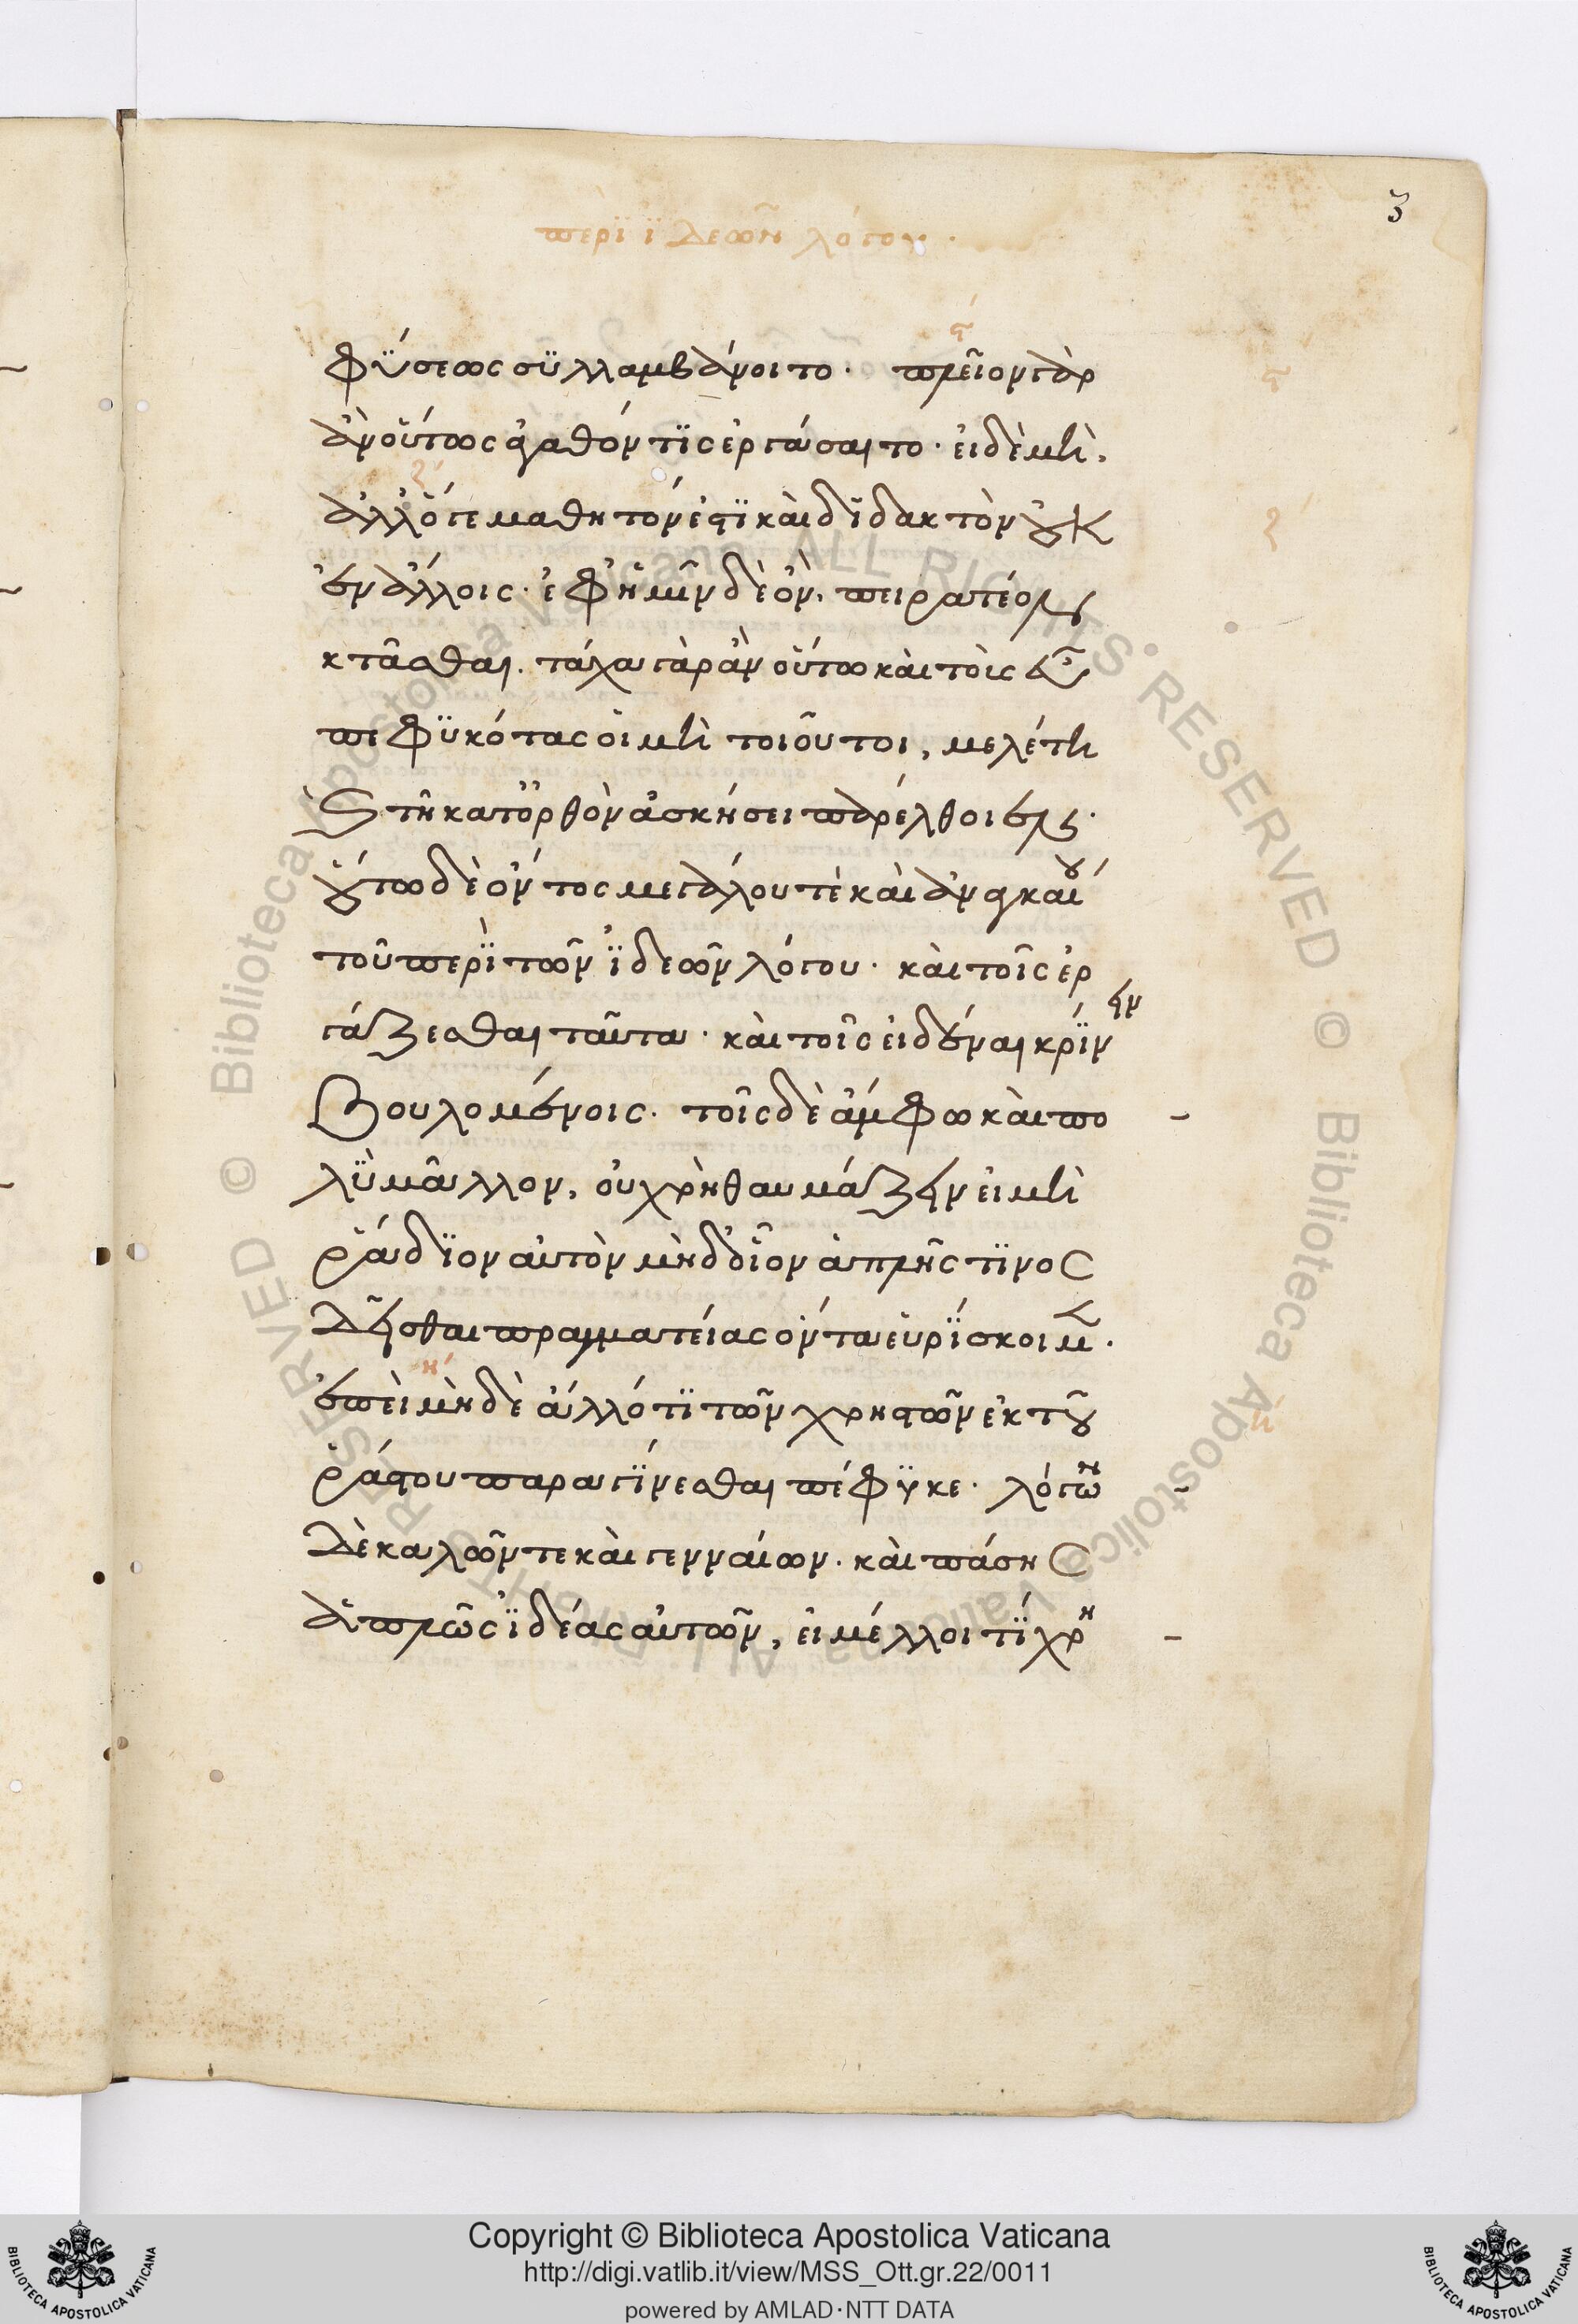 3
περὶ ἰδεῶν λόγου.
ϛ´
φύσεως συλλαμβάνοιτο· πλεῖον γὰρ
ϛ
ἂν οὕτως ἀγαθόν τις ἐργάσαιτο· εἰ δὲ μὴ,
ζ´
ἀλλ' ὅγε μαθητόν ἐστι καὶ διδακτὸν οὐκ
ζ
ἐν ἄλλοις· ἐφ' ἡμῖν δὲ ὂν, πειρατέον
κτᾶσθαι. τάχα γὰρ ἂν οὕτω καὶ τοὺς εὖ
πεφυκότας οἱ μὴ τοιοῦτοι, μελέτη
καὶ τῆ κατ' ὀρθὸν ἀσκήσει παρέλθοιεν·
οὕτω δὲ ὄντος μεγάλου τὲ καὶ ἀναγκαίου
τοῦ περὶ τῶν ἰδεῶν λόγου· καὶ τοῖς ἐρ
γάζεσθαι ταῦτα· καὶ τοῖς εἰδέναι κρίνειν
βουλομένοις· τοῖς δὲ ἄμφω καὶ πο
λὺ μᾶλλον, οὐ χρὴ θαυμάζειν εἰ μὴ
ῥάδιον αὐτὸν μηδ' οἷον ἁπλῆς τινος
δεῖσθαι πραγματείας ὄντα εὑρίσκοιμεν.
η´
ἐπεὶ μηδὲ ἄλλό τι τῶν χρηστῶν ἐκ τοῦ
η´
ῥάστου παραγίνεσθαι πέφυκε· λόγων
δὲ καλῶν τε καὶ γενναίων· καὶ πάσης
ἁπλῶς ἰδέας αὐτῶν, εἰ μέλλοι τί χρη
Copyright © Biblioteca Apostolica Vaticana
http://digi.vatlib.it/view/MSS_Ott.gr.22/0011
powered by AMLAD·NTT DATA
BIBLIOTECA APOSTOLICA VATICANA
BIBLIOTECA APOSTOLICA VATICANA
© Biblioteca Apostolica Vaticana ALL RIGHTS RESERVED
© Biblioteca Apostolica Vaticana ALL RIGHTS RESERVED